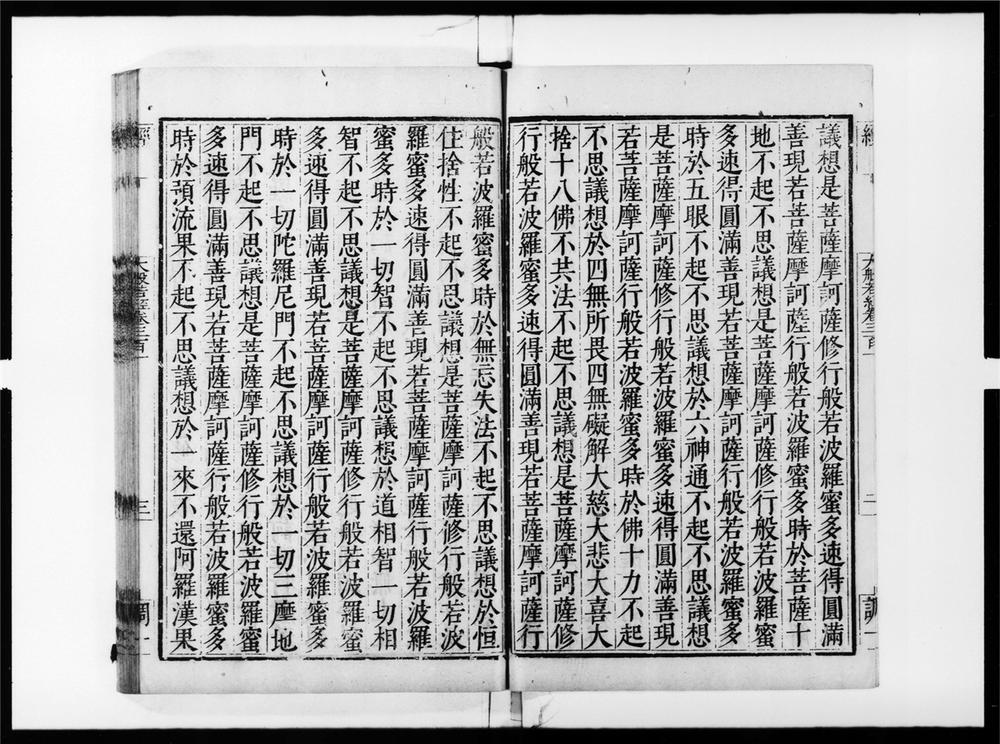 議想是菩薩摩訶薩修行般若波羅蜜多速得圓滿
善現若菩薩摩訶薩行般若波羅蜜多時於菩薩十
地不起不思議想是菩薩摩訶薩修行般若波羅蜜
多速得圓滿善現若菩薩摩訶薩行般若波羅蜜多
時於五眼不起不思議想於六神通不起不思議想
是菩薩摩訶薩修行般若波羅蜜多速得圓滿善現
若菩薩摩訶薩行般若波羅蜜多時於佛十力不起
不思議想於四無所畏四無礙解大慈大悲大喜大
捨十八佛不共法不起不思議想是菩薩摩訶薩修
行般若波羅蜜多速得圓滿善現若菩薩摩訶薩行
般若波羅蜜多時於無忘失法不起不思議想於恒
住捨性不起不思議想是菩薩摩訶薩修行般若波
羅蜜多速得圓滿善現若菩薩摩訶薩行般若波羅
蜜多時於一切智不起不思議想於道相智一切相
智不起不思議想是菩薩摩訶薩修行般若波羅蜜
多速得圓滿善現若菩薩摩訶薩行般若波羅蜜多
時於一切陀羅尼門不起不思議想於一切三摩地
門不起不思議想是菩薩摩訶薩修行般若波羅蜜
多速得圓滿善現若菩薩摩訶薩行般若波羅蜜多
時於預流果不起不思議想於一來不還阿羅漢果
經 大般若經卷三百一 三 調一